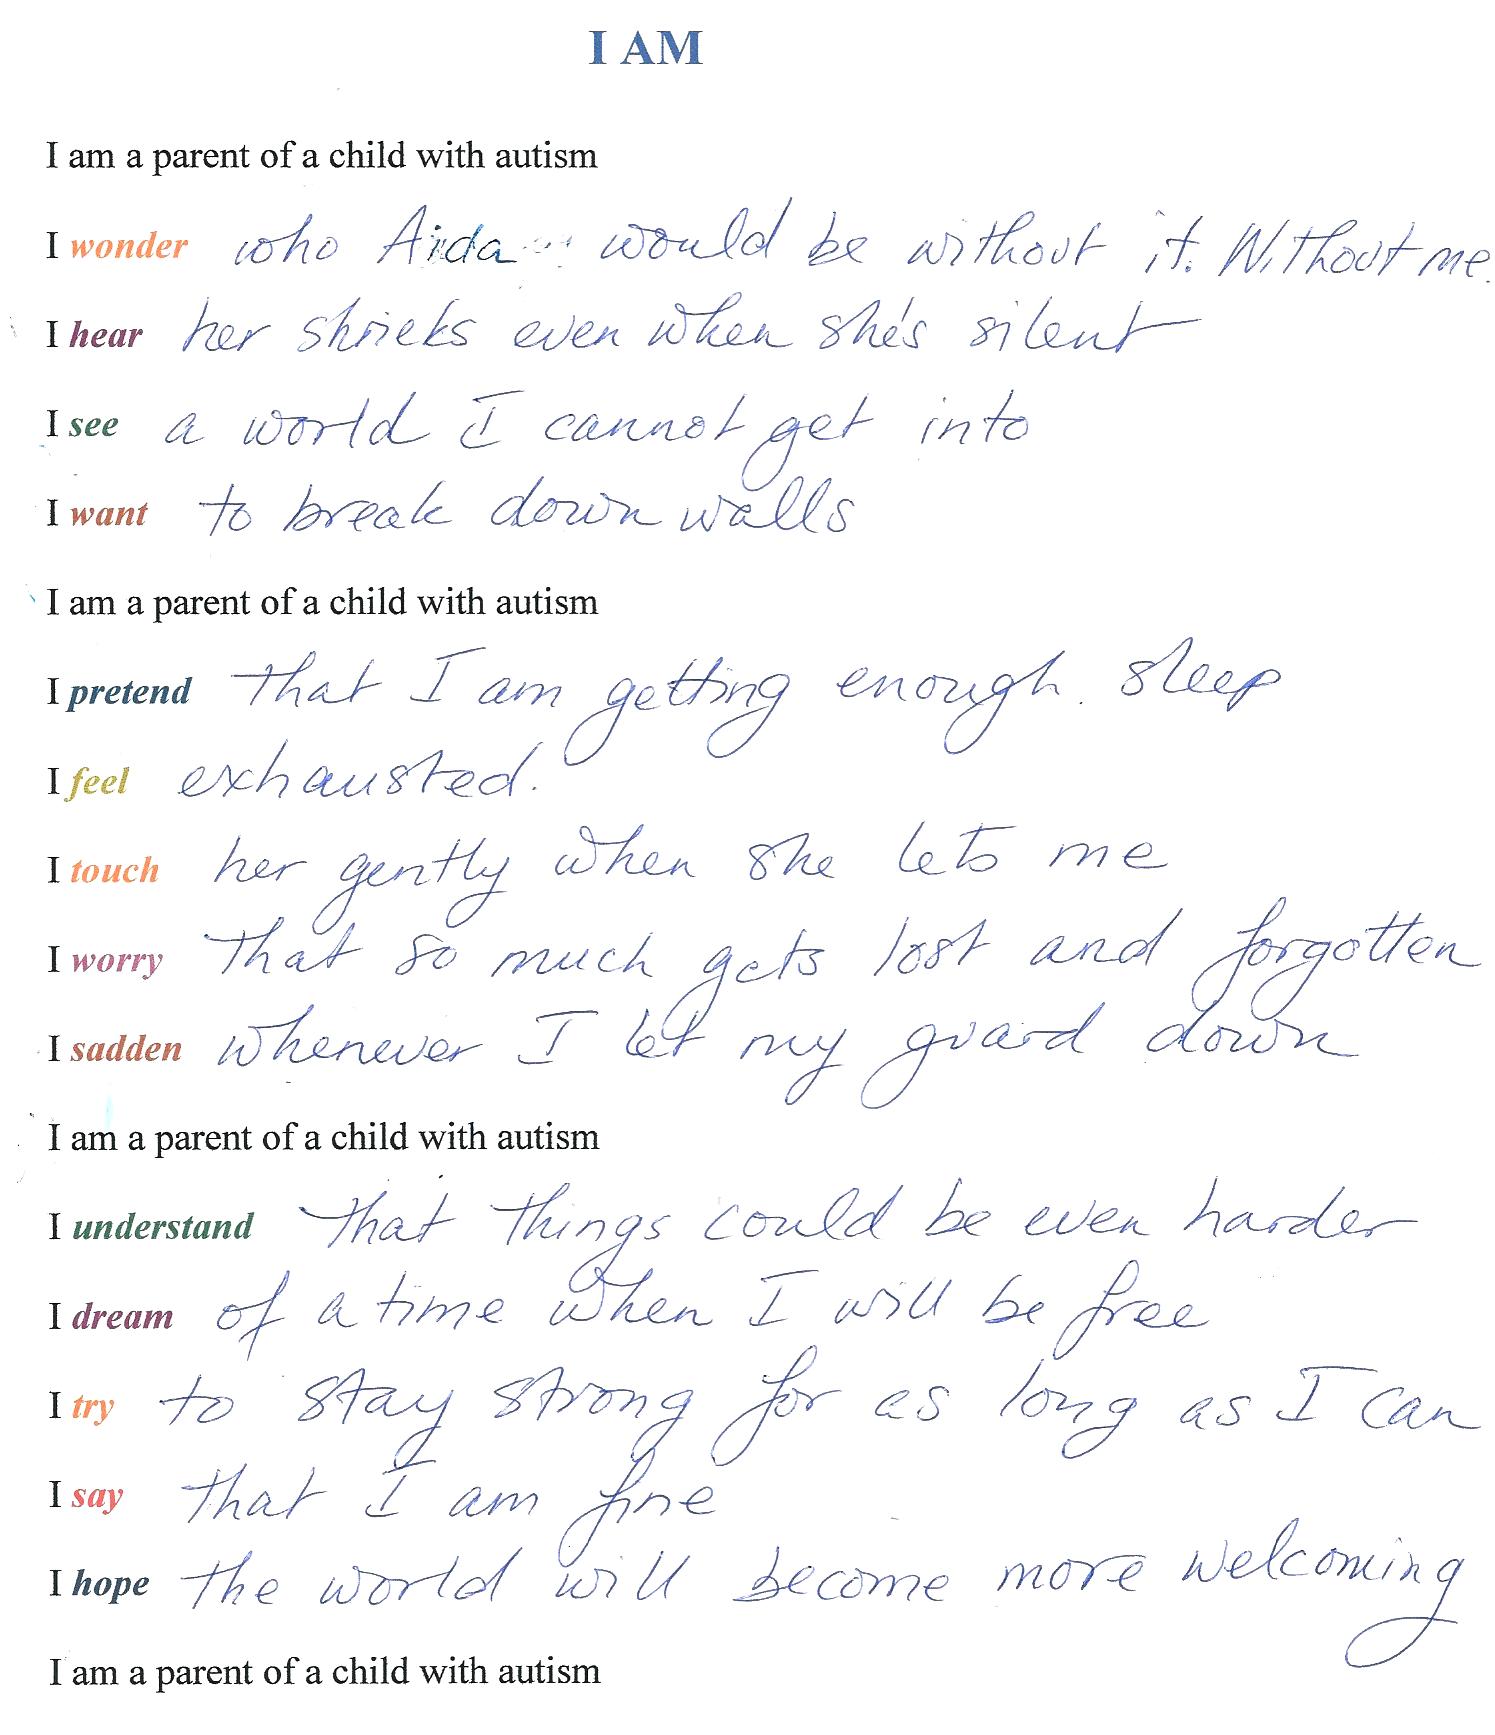 I AM
I am a parent of a child with autism
I wonder who Aida would be without it. Without me.
I hear her shrieks even when she's silent
I see a world I cannot get into
I want to break down walls
I am a parent of a child with autism
I pretend that I am getting enough sleep
I feel exhausted.
I touch her gently when she lets me
I worry that so much gets lost and forgotten
I sadden whenever I let my guard down
I am a parent of a child with autism
I understand that things could be even harder
I dream of a time when I will be free
I try to stay strong for as long as I can
I say that I am fine
I hope the world will become more welcoming
I am a parent of a child with autism